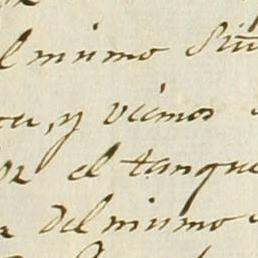 l mismo Siti
ca, y vimos
or el tanque
del mismo